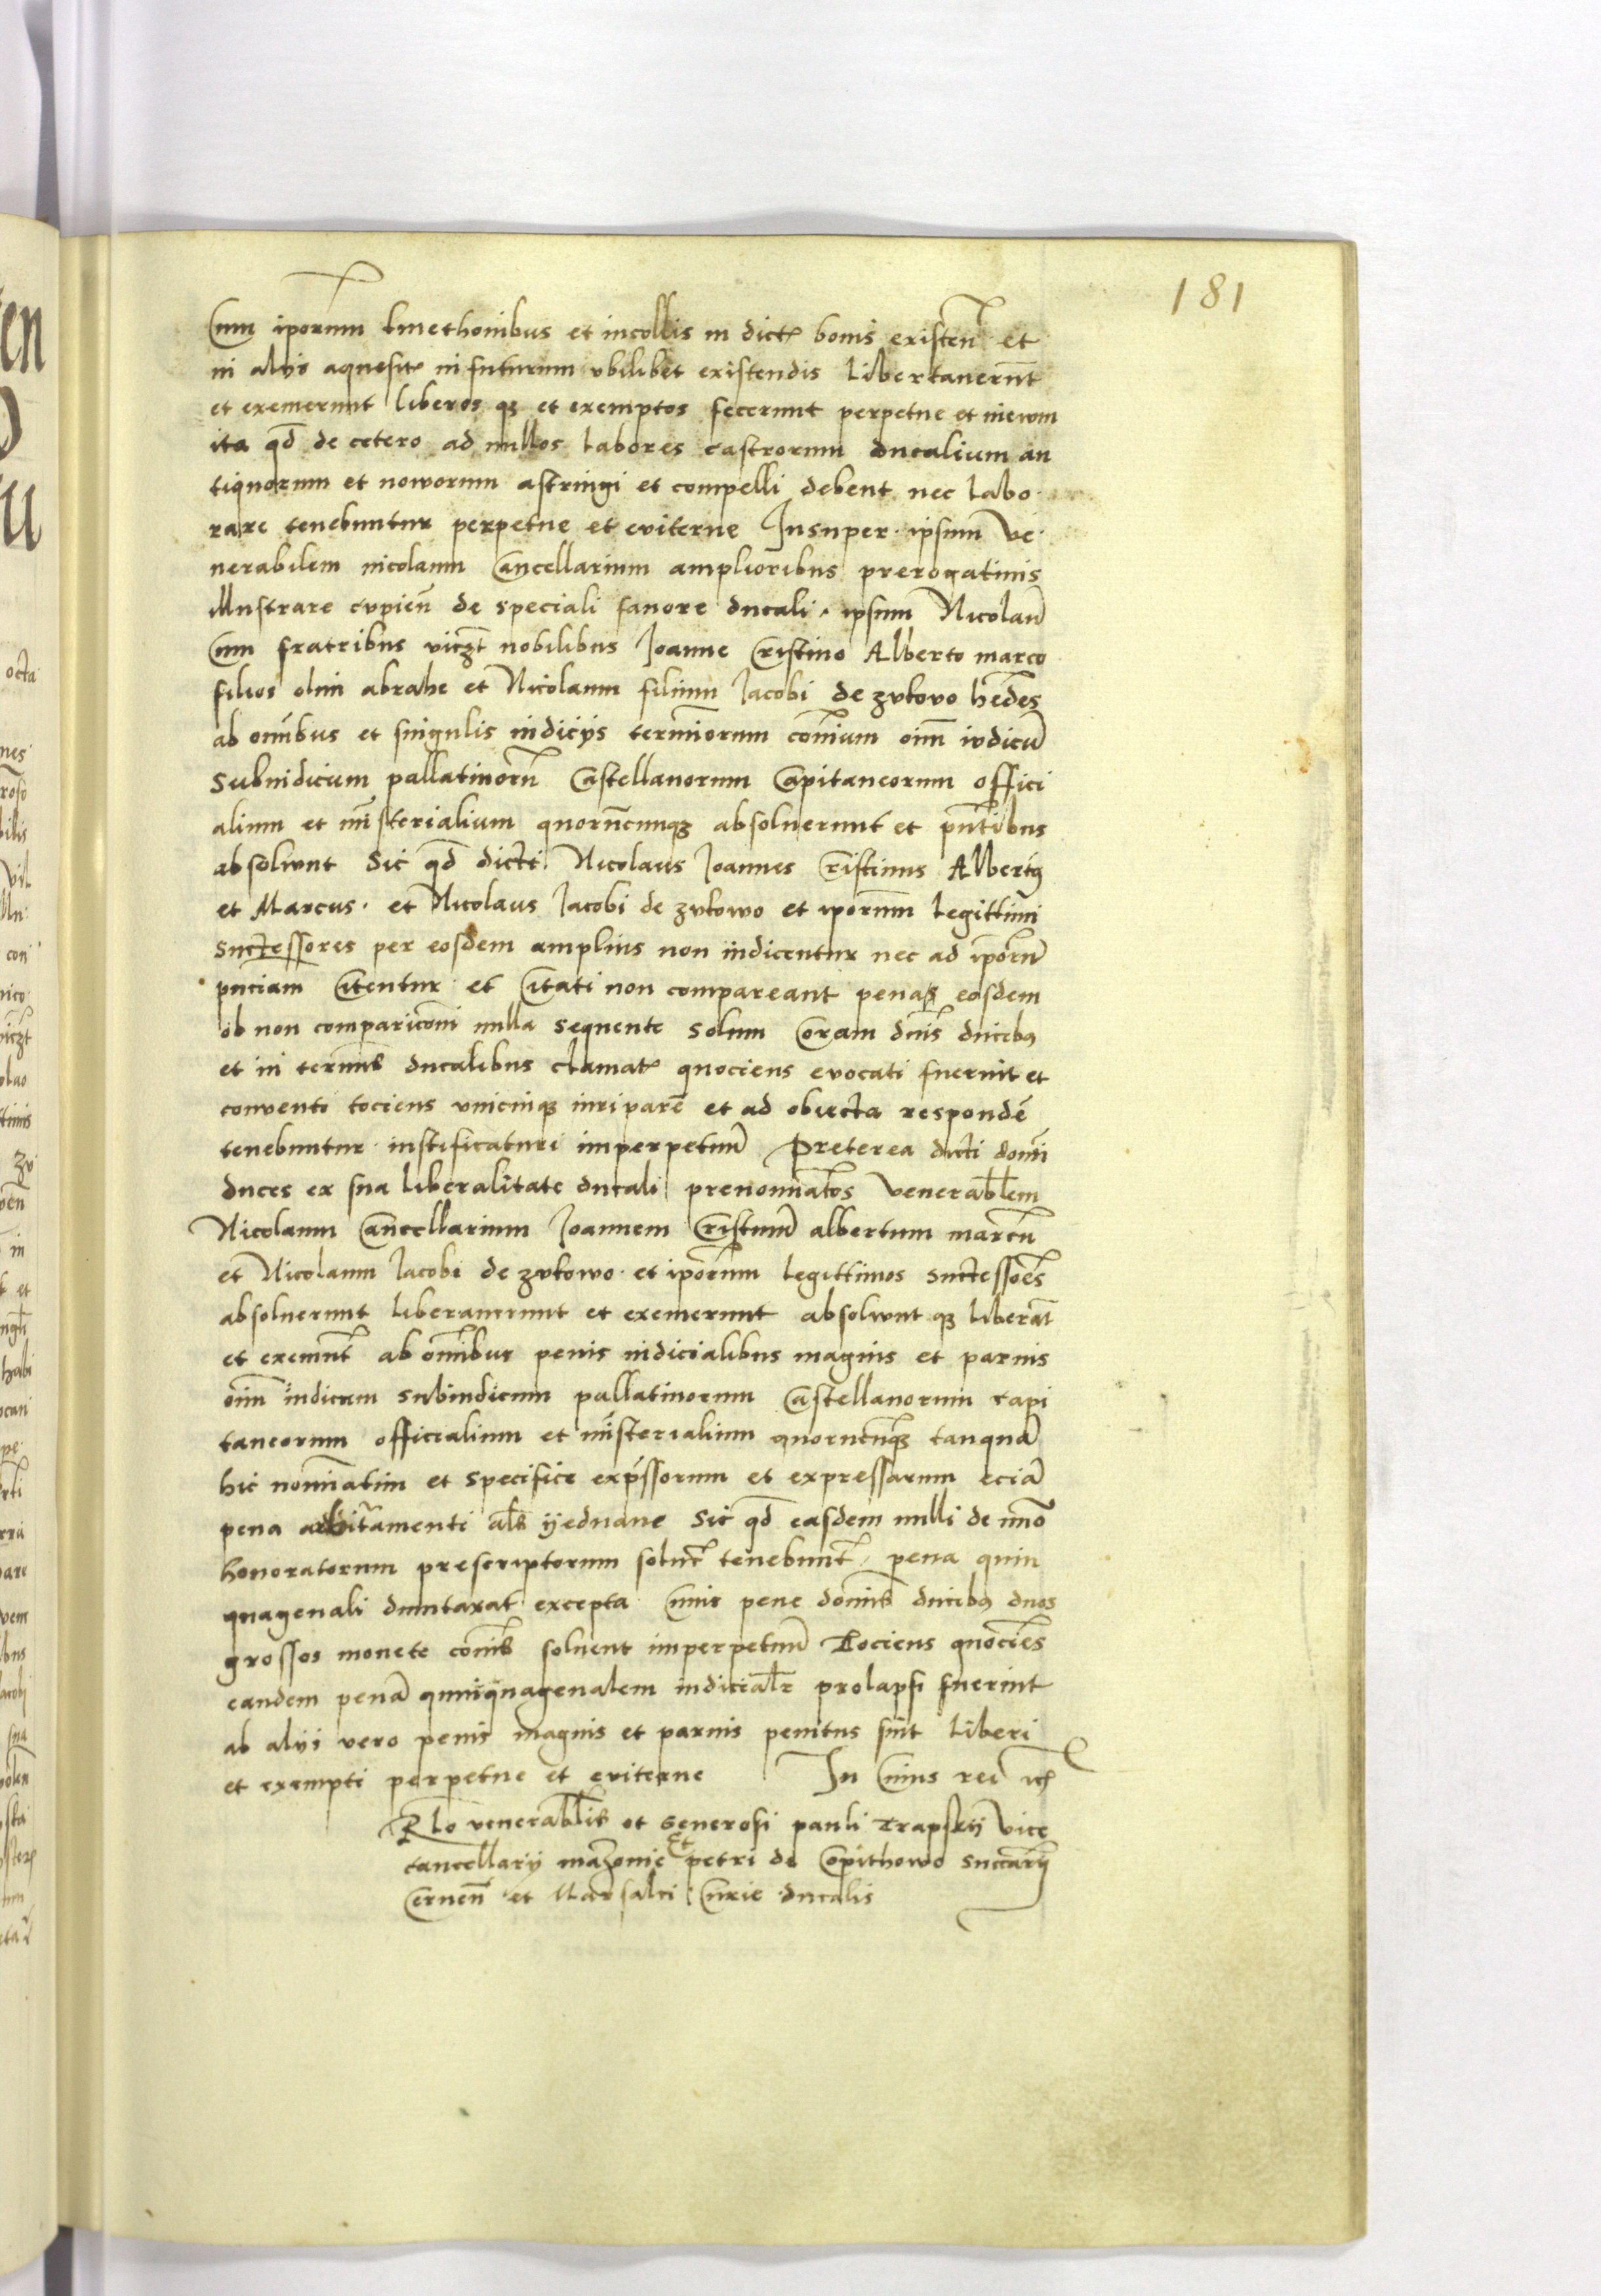 181
Cum iporum kmethonibus et incollis in dictis bonis existen et
in alyis aquesitis in futurum ubilibet existendis libertaverunt
et exemerunt liberos qz et exemptos fecerunt perpetue et in ewm
ita qd de cetero ad nullos labores castrorum ducalium an
tiquorum et noworum astringi et compelli debent nec labo
rare tenebuntur perpetue et eviterne Insuper ipsum Ve
nerabilem nicolaum Cancellarium amplioribus prerogativis
illustrare cupien de speciali favore ducali ipsum Nicolau
Cum fratribus viczt nobilibus Joanne Cristino Alberto marco
filios olim abrahe et Nicolaum filium Jacobi de zukovo hedes
ab omibus et singulis iudicijs terminorum comium oim iudicu
Subiudicum pallatinoru Castellanorum Capitaneorum offici
alium et misterialium quorucumqz absoluerunt et pntibus
absolvunt Sic qd dicti Nicolaus Joannes Cristinus Albertus
et Marcus et Nicolaus Jacobi de zukowo et iporum legittimi
Successores per eosdem amplius non iudicentur nec ad iporu
pnciam Citentur et Citati non compareant penas easdem
ob non compariconi nulla sequente solum Coram dnis ducibus
et in terminis ducalibus clamatis quociens evocati fuerint et
conventi tociens unicuiqz iuri pare et ad obiecta responde
tenebuntur iustificaturi imperpetuu Preterea dicti domi
duces ex sua liberalitate ducali prenominatos venerablem
Nicolaum Cancellarium Joannem Cristinu albertum marcu
et Nicolaum Jacobi de zukowo et iporum legittimos successoes
absoluerunt liberaverunt et exemerunt absolvunt qz liberat
et exemunt ab omibus penis iudicialibus magnis et parvis
oim iudicum subiudicum pallatinorum Castellanorum capi
taneorum officialium et misterialium quorucuqz tanqua
hic nominatim et specifice expssorum et expressarum ecia
pena Sic qd easdem nulli de no
honoratorum prescriptorum soluere tenebuntur pena quin
quagenali duntaxat excepta Cuius pene domis ducibus duos
grossos monete comis soluent imperpetuu Tociens quocies
eandem pena quinquagenalem iudicialr prolapsi fuerint
ab alyis vero penis magnis et parvis penitus sint liberi
et exempti perpetue et eviterne In Cuius rei
Rlo venerablis et generosi pauli Trapskij vice
cancellarij mazovie Et petri de Copithowo succamrij
Cernen et Marsalci Curie ducalis